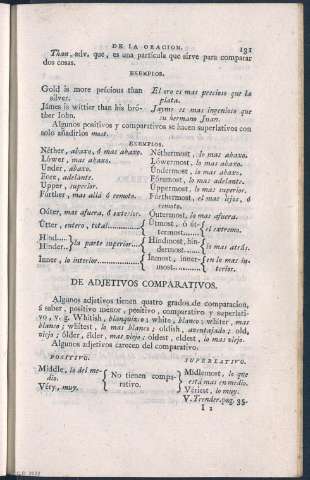 DE LA ORACION. 131
Than, adv. que, es una partícula que sirve para comparar
dos cosas.
EXEMPLOS.
Gold is more précious than silver. El oro es mas precioso que la plata.
James is wittier than his bróther Iohn. Jayme es mas ingenioso que su hermano Juan.
Algunos positivos y comparativos se hacen superlativos con
solo añadirlos most.
EXEMPLOS.
Néther, abaxo, ó mas abaxo. Néthermost, lo mas abaxo.
Lówer, mas abaxo. Lówermost, lo mas abaxo.
Under, abaxo. Undermost, lo mas abaxo.
Fore, adelante. Fóremost, lo mas adelante.
Upper, superior. Uppermost, lo mas superior.
Fúrther, mas allá ó remoto. Fúrthermost, el mas léjos, ó remoto.
Oúter, mas afuera, ó exterior. Oútermost, lo mas afuera.
Útter, entero, total. Útmost, ó úttermost. el extremo.
Hind. Hinder. la parte superior. Híndmost, hindermost. lo mas atrás.
Inner, lo interior. Inmost, innermost. en lo mas interior.
DE ADJETIVOS COMPARATIVOS.
Algunos adjetivos tienen quatro grados de comparacion,
á saber, positivo menor, positivo, comparativo y superlati-
vo, v. g. Whitish, blanquizco; white, blanco; whiter, mas
blanco; whitest, lo mas blanco; oldish, aventajado; old,
viejo; ólder, élder, mas viejo; oldest, eldest, lo mas viejo.
Algunos adjetivos carecen del comparativo.
POSITIVO. SUPERLATIVO.
Middle, lo del medio. No tienen comparativo. Midlemost, lo que está mas en medio.
Véry, muy. Vériest, lo muy.
V. Trender. pag. 35.
I 2